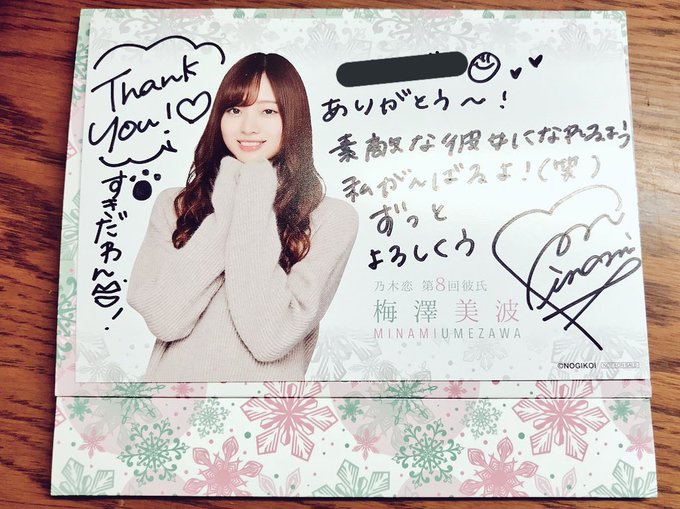 Thank
you!♡
すきだわん!
ありがとう〜!
素敵な彼女になれるよう
私がんばるよ!(笑)
ずっと
よろしくう
Minami
乃木恋 第8回彼氏
梅澤美波
MINAMIUMEZAWA
©NOGIKOI NOT FOR SALE